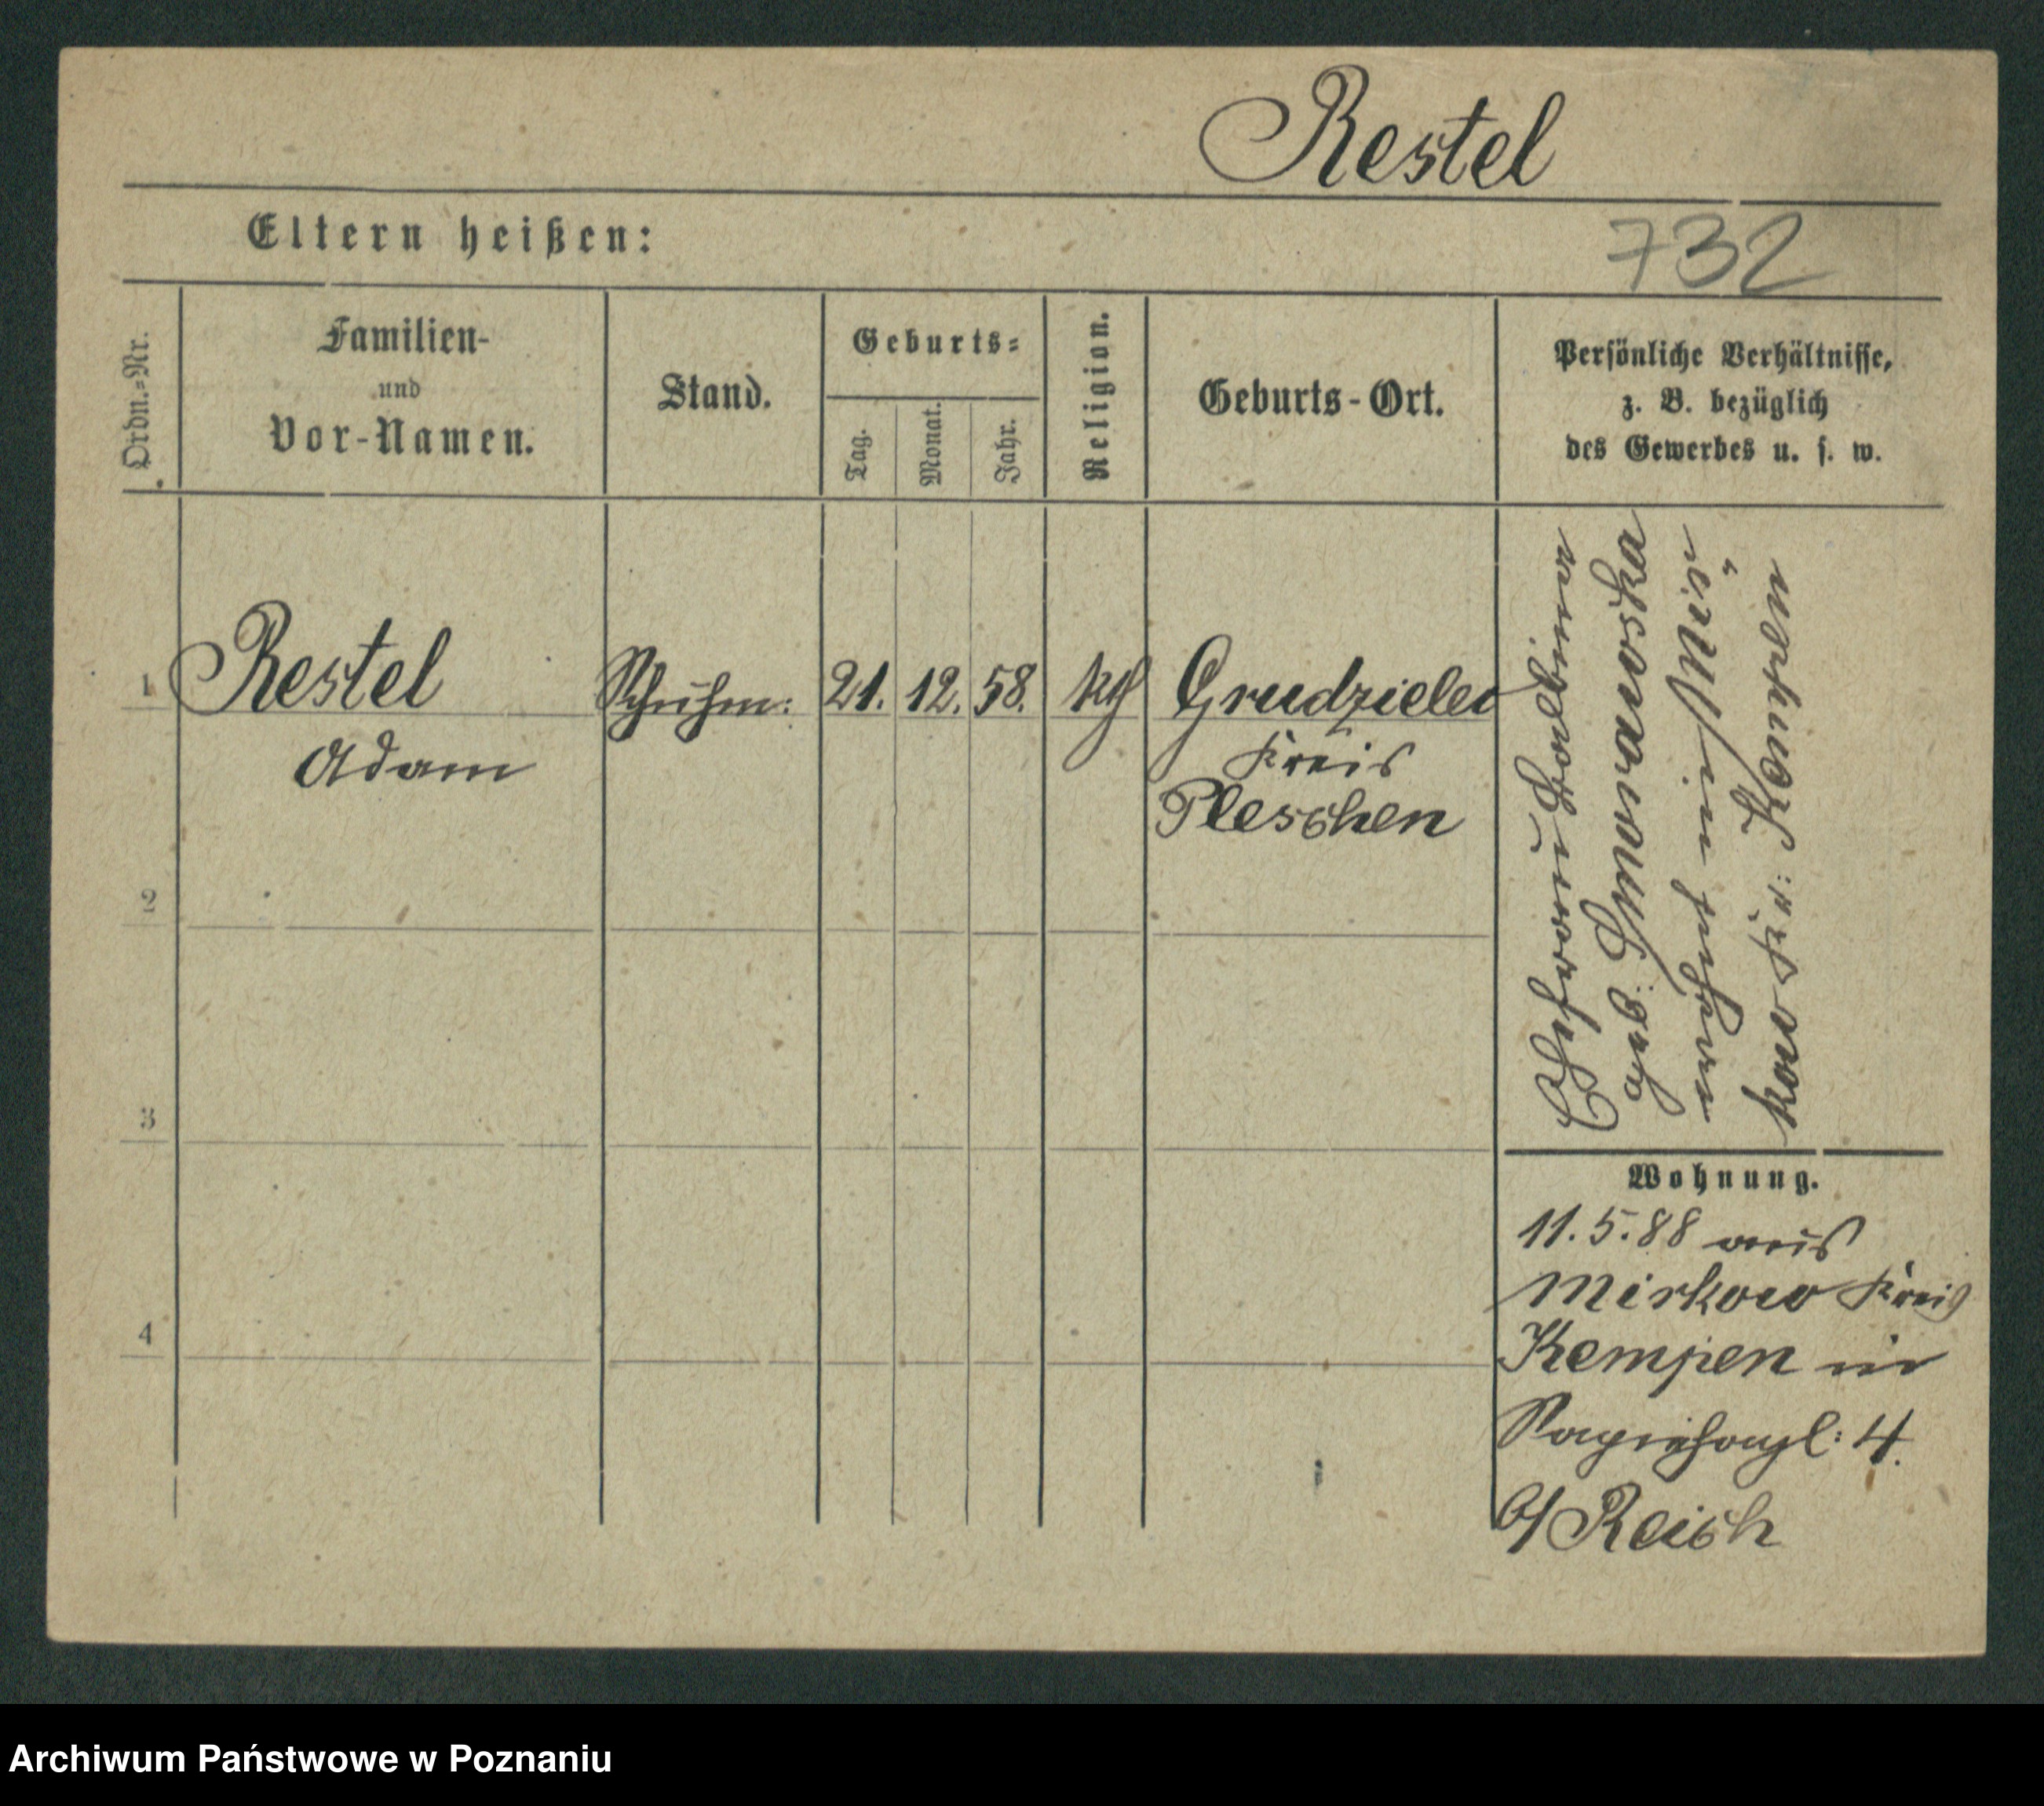 Restel
Eltern heißen:
732
Ordn.-Nr.
Familien-
und
Vor-Namen.
Stand.
Geburts-
Tag.
Monat.
Jahr.
Religion.
Geburts-Ort.
Persönliche Verhältnisse,
z. B. bezüglich
des Gewerbes u. s. w.
1 Restel Schuhm: 21. 12. 58. kth Grudzielec
Adam Kreis
Pleschen
Ehefrau
geb: Smorawska
in Mir
kow Kr: Kempen
2
3
4
Wohnung.
11.5.88 aus
Mirkow Kreis
Kempen in
4.
b/ Reich
Archiwum Państwowe w Poznaniu